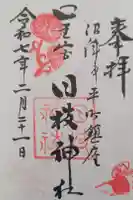 奉拝
沼津市平町鎮座
日枝神社
令和七年二月二十一日